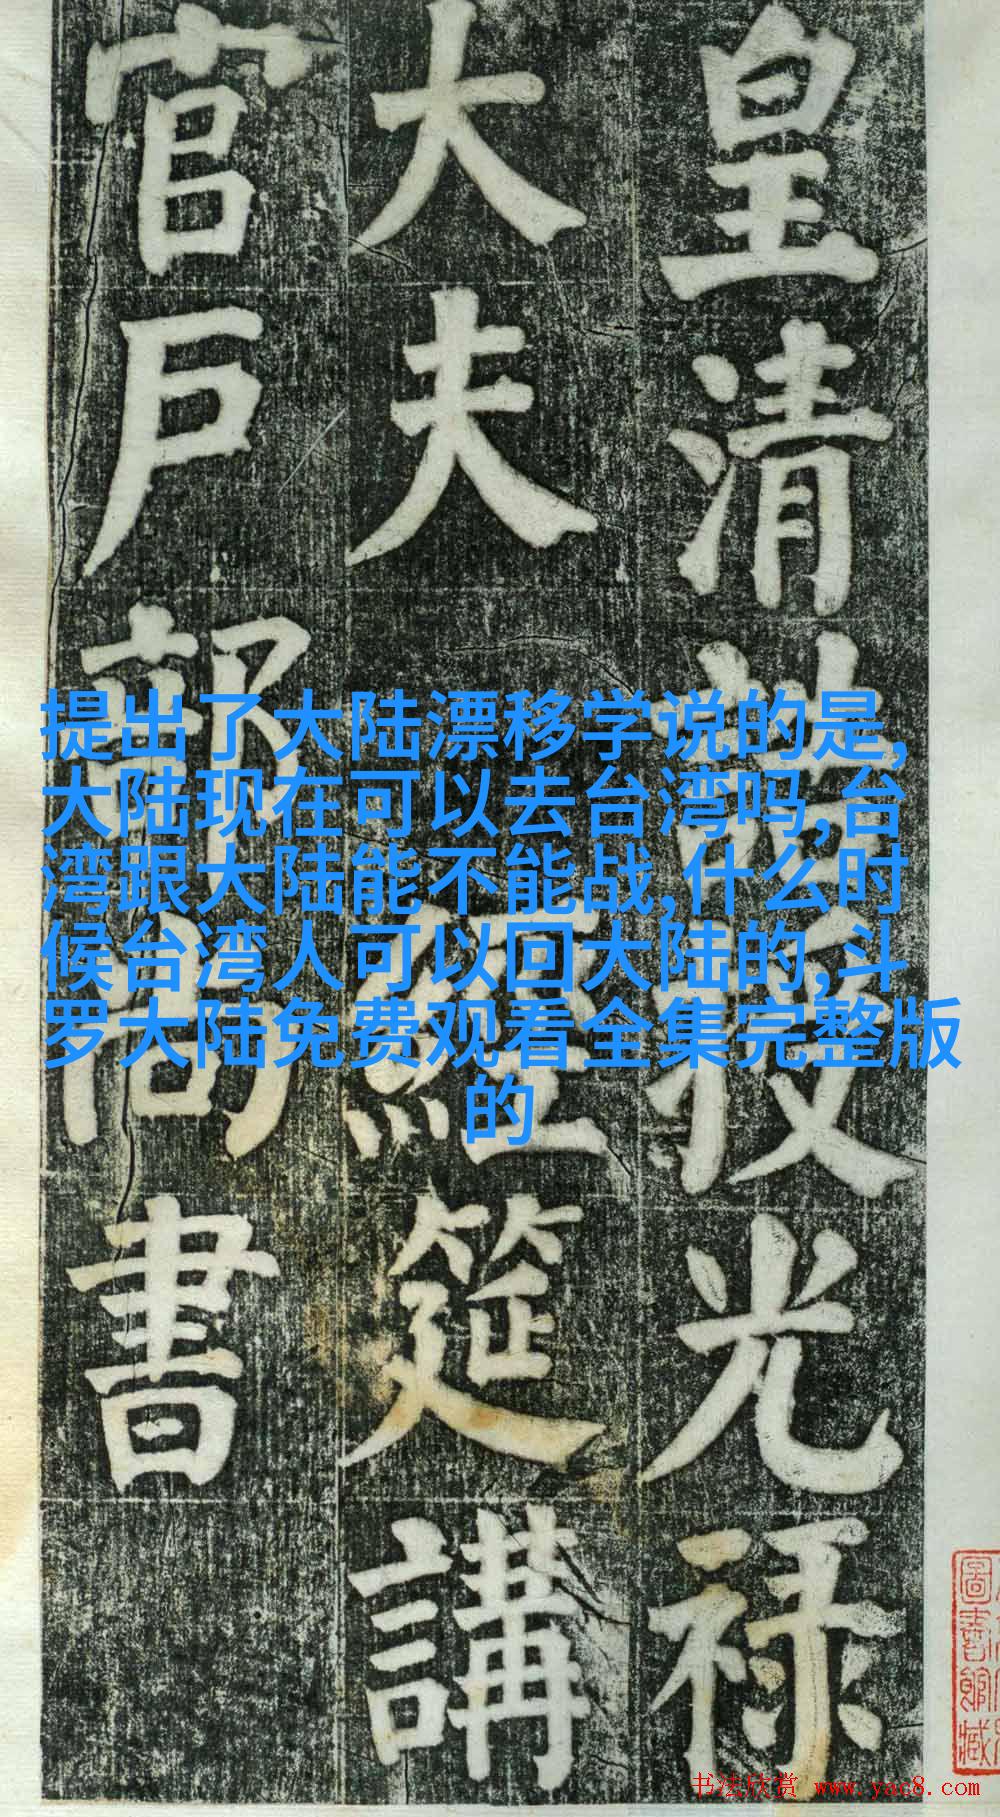 皇清誥授光禄
大夫經筵講
官戸部尚書
提出了大陆漂移学说的是,
大陆现在可以去台湾吗,台
湾跟大陆能不能战,什么时
候台湾人可以回大陆的,斗
罗大陆免费观看全集完整版
的
圖書館藏
书法欣赏 www.yac8.com